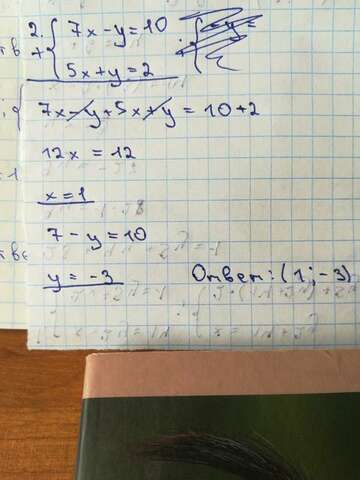 2. { 7x - y = 10
+ { 5x + y = 2
7x - y + 5x + y = 10 + 2
12x = 12
x = 1
7 - y = 10
y = -3 Ответ: (1; -3)